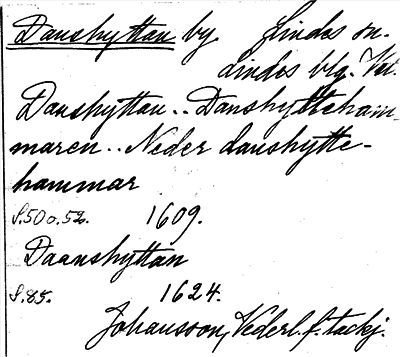 Danshyttan by Lindes sn.
Lindes blg. Vstm.
Danshyttan.. Danshytteham-
maren.. Neder danshytte-
hammar
S. 50 o. 52. 1609.
Daanshyttan
S. 85. 1624.
Johansson, Vederl. f. tackj.